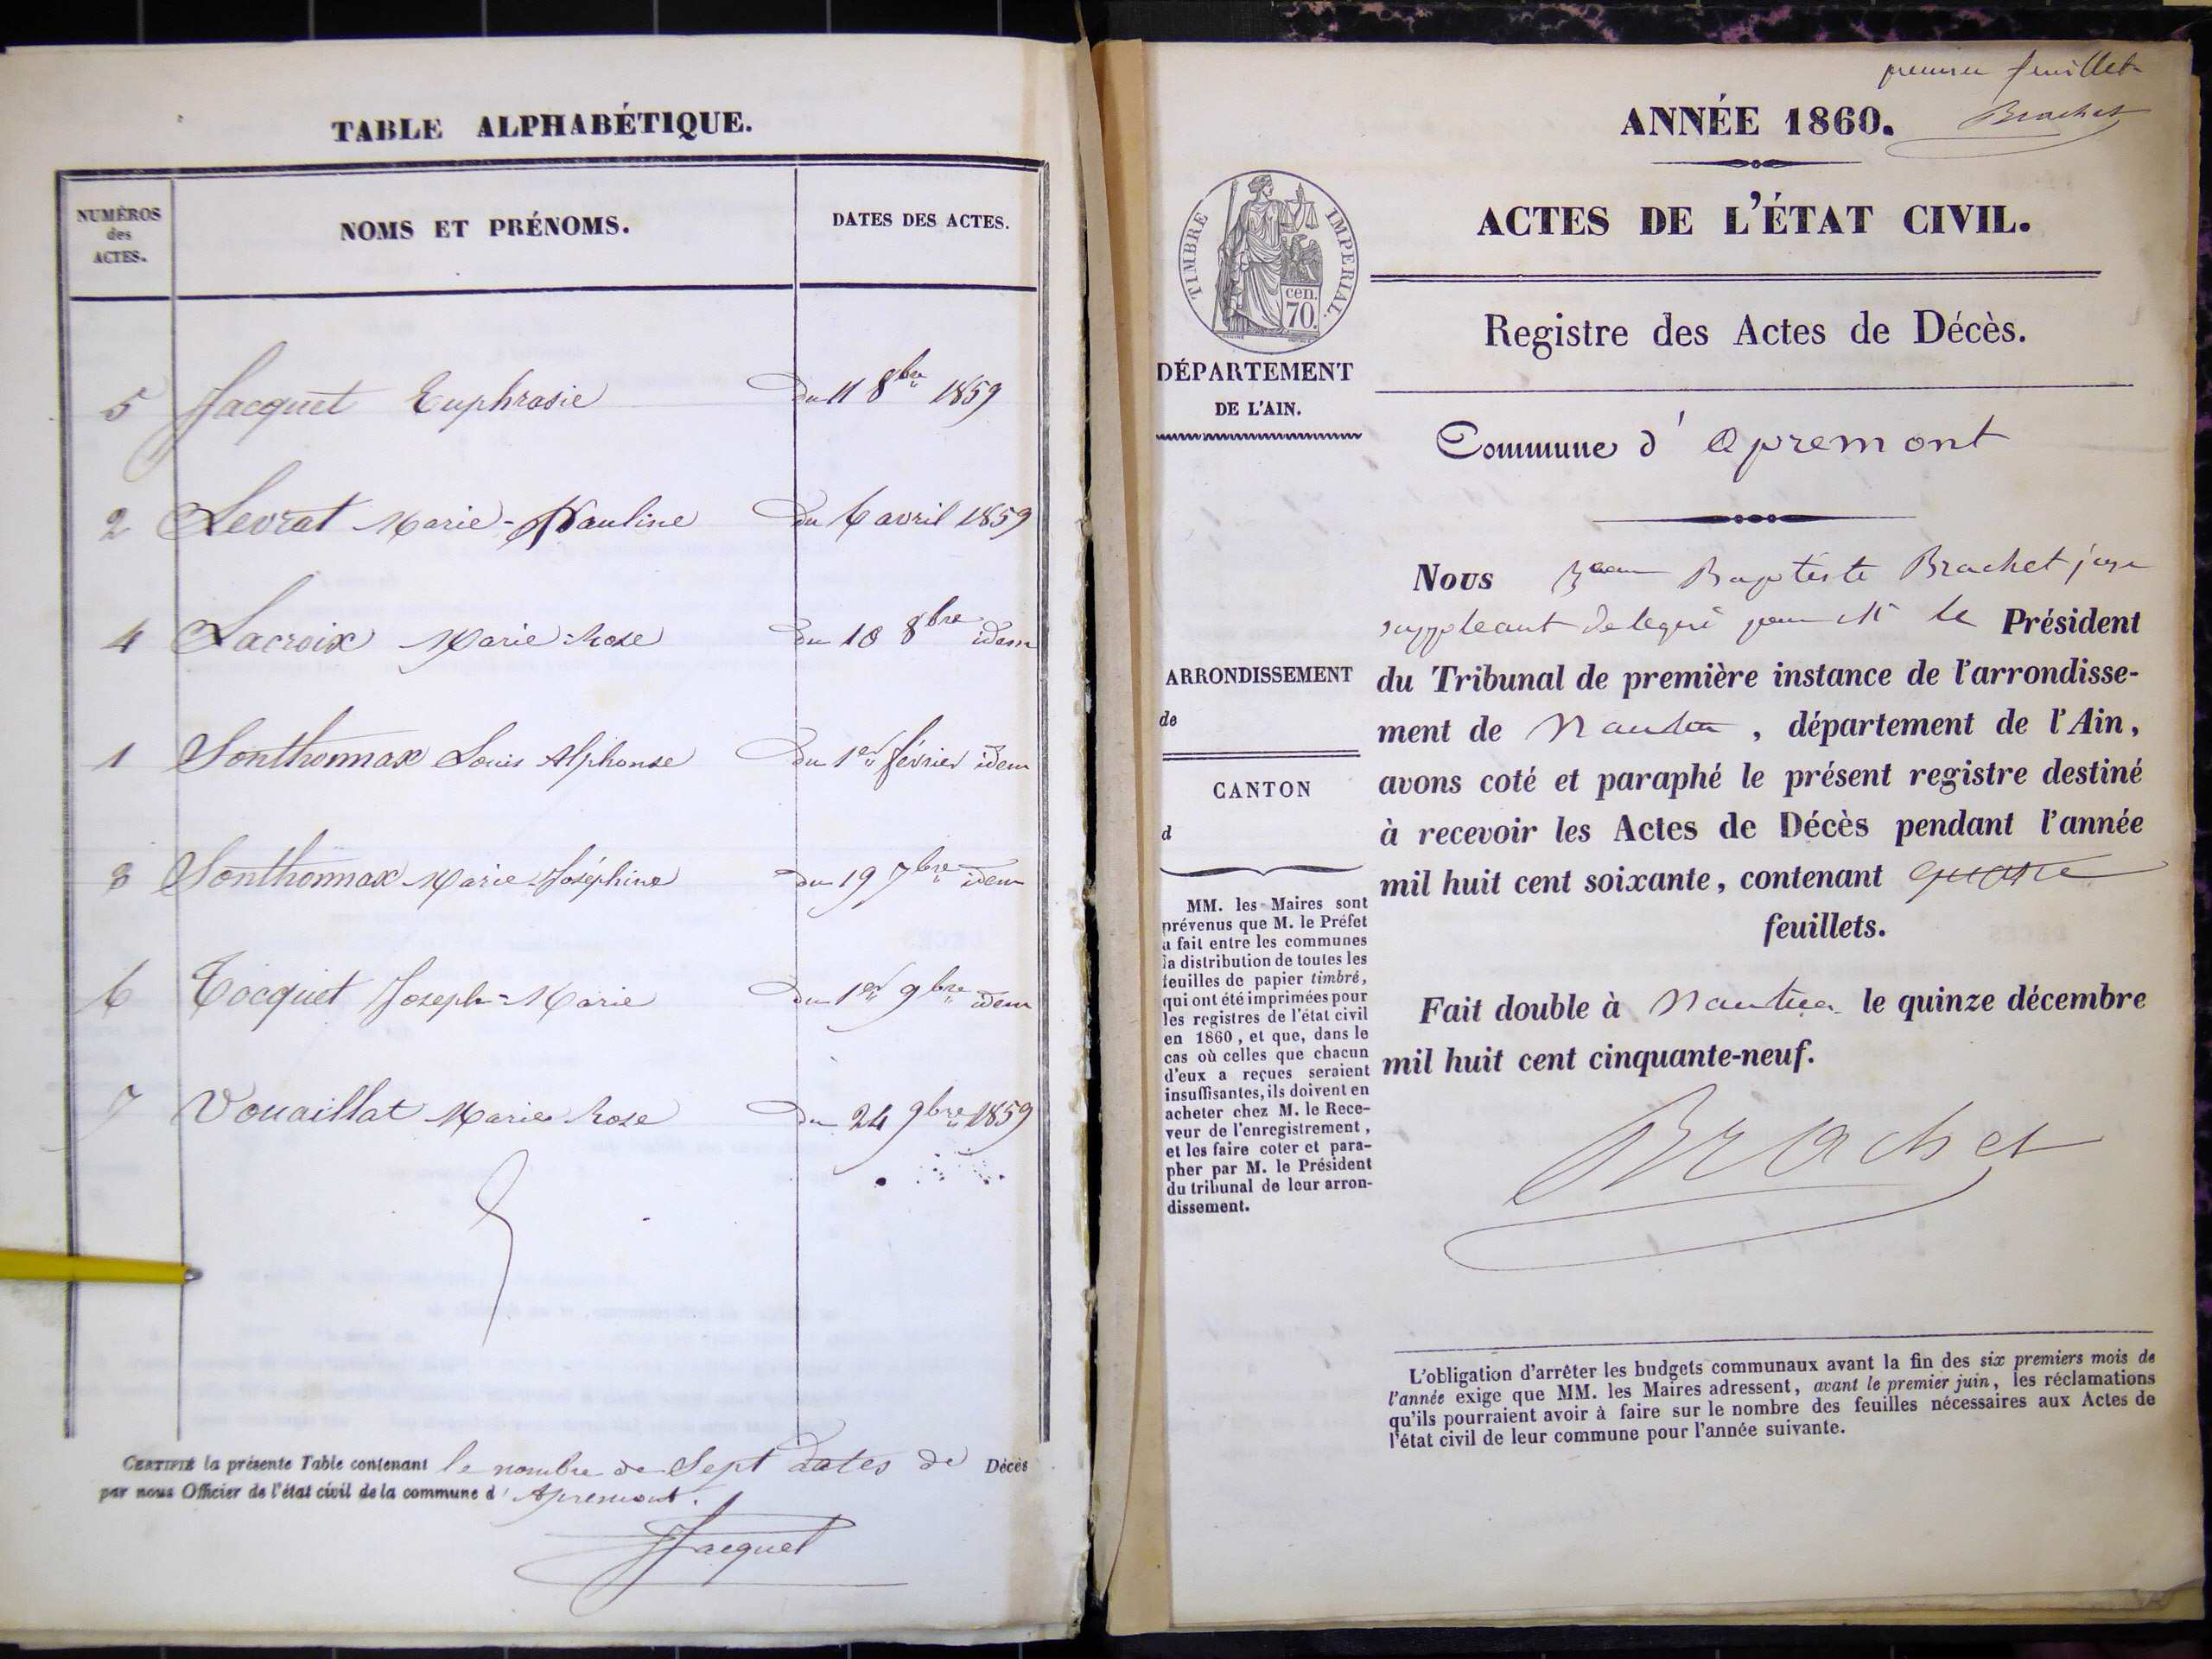 TABLE ALPHABÉTIQUE.
NUMÉROS des ACTES.
NOMS ET PRÉNOMS.
DATES DES ACTES.
5 Jacquet Euphrasie du 11 8bre 1859
2 Levrat Marie-Pauline du 6 avril 1859
4 Lacroix Marie-Rose du 10 8bre idem
1 Sonthonnax Louis Alphonse du 1er février idem
3 Sonthonnax Marie-Joséphine du 19 7bre idem
6 Tocquet Joseph-Marie du 1er 9bre idem
7 Vouaillat Marie Rose du 24 9bre 1859
CERTIFIÉ la présente Table contenant le nombre de Sept dates de Décès
par nous Officier de l'état civil de la commune d' Apremont.
Jacquet
premier feuillet
Brachet
ANNÉE 1860.
ACTES DE L'ÉTAT CIVIL.
TIMBRE IMPERIAL.
cen.
70.
DÉPARTEMENT
DE L'AIN.
Registre des Actes de Décès.
Commune d' apremont
Nous Jean Baptiste Brachet juge
suppleant delegué par Mr le Président
du Tribunal de première instance de l'arrondisse-
ment de Nantua, département de l'Ain,
avons coté et paraphé le présent registre destiné
à recevoir les Actes de Décès pendant l'année
mil huit cent soixante, contenant quatre
feuillets.
Fait double à Nantua le quinze décembre
mil huit cent cinquante-neuf.
Brachet
ARRONDISSEMENT
de
CANTON
d
MM. les Maires sont
prévenus que M. le Préfet
a fait entre les communes
la distribution de toutes les
feuilles de papier timbré,
qui ont été imprimées pour
les registres de l'état civil
en 1860, et que, dans le
cas où celles que chacun
d'eux a reçues seraient
insuffisantes, ils doivent en
acheter chez M. le Rece-
veur de l'enregistrement,
et les faire coter et para-
pher par M. le Président
du tribunal de leur arron-
dissement.
L'obligation d'arrêter les budgets communaux avant la fin des six premiers mois de
l'année exige que MM. les Maires adressent, avant le premier juin, les réclamations
qu'ils pourraient avoir à faire sur le nombre des feuilles nécessaires aux Actes de
l'état civil de leur commune pour l'année suivante.